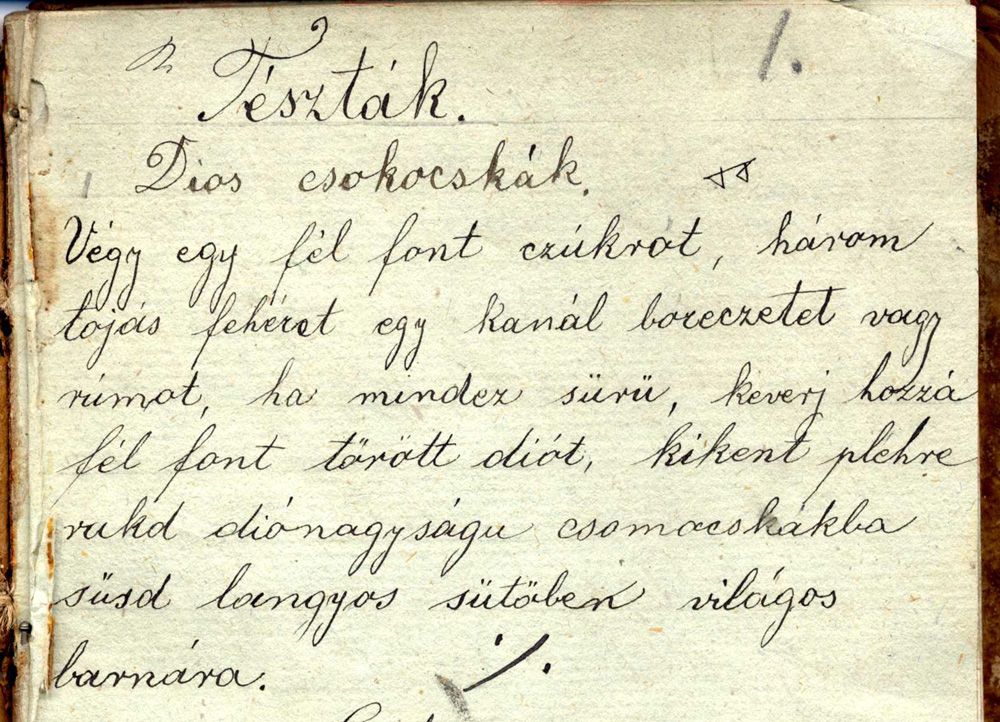 1.
Tészták.
Dios csokocskák.
Végy egy fél font czúkrot, három
tojás fehéret egy kanál boreczetet vagy
rúmot, ha mindez sürü, keverj hozzá
fél font törött diót, kikent plehre
rukd diónagyságu csomocskákba
süsd langyos sütöben világos
barnára.